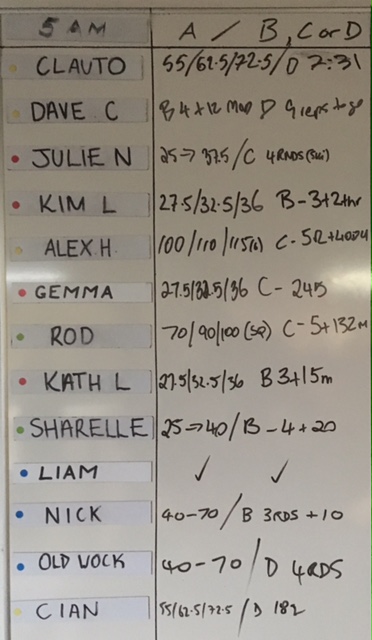 5 AM A / B, C or D
CLAUTO 55/62.5/72.5/D 7:31
DAVE C B 4+12 D 9 reps to go
JULIE N 25→37.5/C 4RNDS
KIM L 27.5/32.5/36 B-3+2
ALEX.H 100/110/115 C-5R+400M
GEMMA 27.5/32.5/36 C-245
ROD 70/90/100 (SQ) C-5+132m
KATH L 27.5/32.5/36 B 3+15m
SHARELLE 25→40/B-4+20
LIAM ✓ ✓
NICK 40-70/B 3RDS+10
OLD 40-70/D 4RDS
CIAN 55/62.5/72.5/D 182